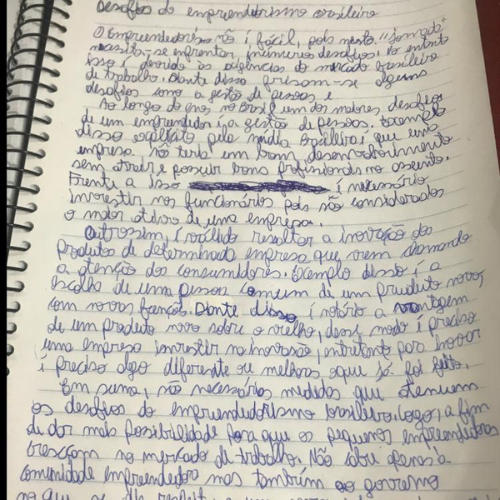 Desafios do empreendedorismo brasileiro
O Empreendedorismo não é fácil, pois neste
necessita-se enfrentar inúmeros desafios. No entanto
isso é devido às exigências do mercado brasileiro
de trabalho. Diante disso alguns
desafios como a gestão de pessoas e
Ao longo do ano, no Brasil um dos maiores desafios
de um empreendedor é a gestão de pessoas. Exemplo
disso pela mídia brasileira, que uma
empresa não terá um bom desenvolvimento
sem atrair e possuir bons profissionais no assunto.
Frente a isso é necessário
investir nos funcionários pois são considerados
o maior ativo de uma empresa.
Outrossim, é válido a inovação dos
produtos de determinada empresa que vem chamando
a atenção dos consumidores. Exemplo disso é a
escolha de uma pessoa comum de um produto novo,
com novas Diante disso, é notório a vantagem
de um produto novo sobre o velho, desse modo é preciso
uma empresa investir na inovação, entretanto para inovar
é preciso algo diferente ou melhorar oque já foi feito.
Em suma, são necessárias medidas que atenuem
os desafios do empreendedorismo brasileiro. Logo, a fim
de dar mais possibilidade para que os pequenos empreendedores
cresçam no mercado de trabalho. Não sobre apenas a
comunidade empreendedora mas também ao governo
no que se